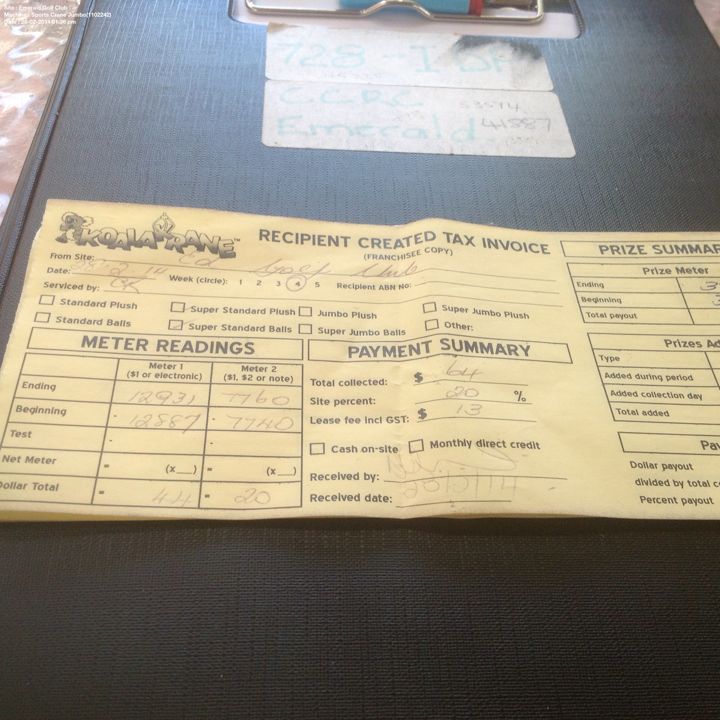 Site : Emerald Golf Club
Machine : Sports Crane Jumbo(1102242)
728 - I
CCRC 53574
Emerald 41887
KOALA KRANE™
RECIPIENT CREATED TAX INVOICE
(FRANCHISEE COPY)
From Site: Golf Club
Date: 28-2-14 Week (circle): 1 2 3 4 5 Recipient ABN No:
Serviced by: CK
Standard Plush Super Standard Plush Jumbo Plush Super Jumbo Plush
Standard Balls Super Standard Balls Super Jumbo Balls Other:
METER READINGS
Meter 1 Meter 2
($1 or electronic) ($1, $2 or note)
Ending 12931 7760
Beginning 12887 7740
Test - -
Net Meter = (x__) = (x__)
Dollar Total = 44 = 20
PAYMENT SUMMARY
Total collected: $ 64
Site percent: 20 %
Lease fee incl GST: $ 13
Cash on-site Monthly direct credit
Received by:
Received date:
PRIZE SUMMAR
Prize Meter
Ending 3
Beginning 3
Total payout
Prizes Ad
Type
Added during period
Added collection day
Total added
Pay
Dollar payout
divided by total c
Percent payout